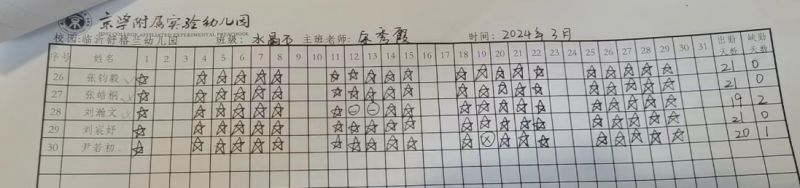 京学附属实验幼儿园
AFFILIATED EXPERIMENTAL PRESCHOOL
校园:临沂舒格兰幼儿园 班级: 水晶 主班老师: 秀霞 时间: 2024年3月
序号 姓名 1 2 3 4 5 6 7 8 9 10 11 12 13 14 15 16 17 18 19 20 21 22 23 24 25 26 27 28 29 30 31 出勤天数 缺勤天数
26 张钧毅 ☆ ☆ ☆ ☆ ☆ ☆ ☆ ☆ ☆ ☆ ☆ ☆ ☆ ☆ ☆ ☆ ☆ ☆ ☆ ☆ ☆ 21 0
27 张皓桐 ☆ ☆ ☆ ☆ ☆ ☆ ☆ ☆ ☆ ☆ ☆ ☆ ☆ ☆ ☆ ☆ ☆ ☆ ☆ ☆ ☆ 21 0
28 刘瀚文 ☆ ☆ ☆ ☆ ☆ ☆ ☆ ⊖ ⊖ ☆ ☆ ☆ ☆ ☆ ☆ ☆ ☆ ☆ ☆ ☆ ☆ 19 2
29 刘宸妤 ☆ ☆ ☆ ☆ ☆ ☆ ☆ ☆ ☆ ☆ ☆ ☆ ☆ ☆ ☆ ☆ ☆ ☆ ☆ ☆ ☆ 21 0
30 尹若初 ☆ ☆ ☆ ☆ ☆ ☆ ☆ ☆ ☆ ☆ ☆ ☆ ⊗ ☆ ☆ ☆ ☆ ☆ ☆ ☆ ☆ 20 1